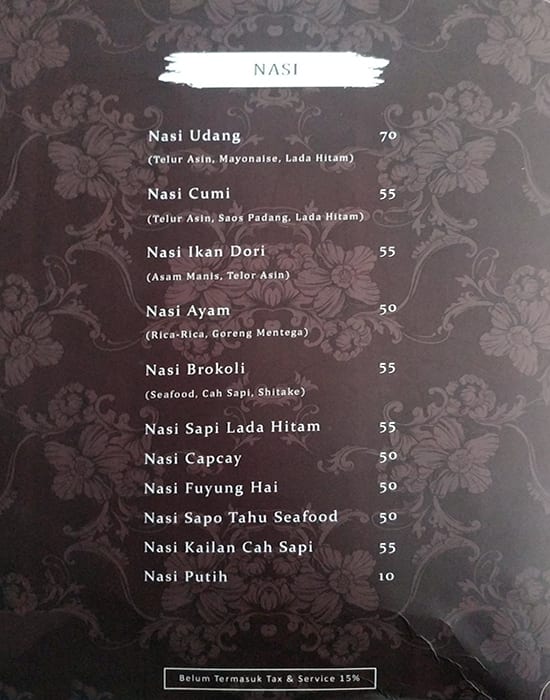 NASI
Nasi Udang 70
(Telur Asin, Mayonaise, Lada Hitam)
Nasi Cumi 55
(Telur Asin, Saos Padang, Lada Hitam)
Nasi Ikan Dori 55
(Asam Manis, Telor Asin)
Nasi Ayam 50
(Rica-Rica, Goreng Mentega)
Nasi Brokoli 55
(Seafood, Cah Sapi, Shitake)
Nasi Sapi Lada Hitam 55
Nasi Capcay 50
Nasi Fuyung Hai 50
Nasi Sapo Tahu Seafood 50
Nasi Kailan Cah Sapi 55
Nasi Putih 10
Belum Termasuk Tax & Service 15%